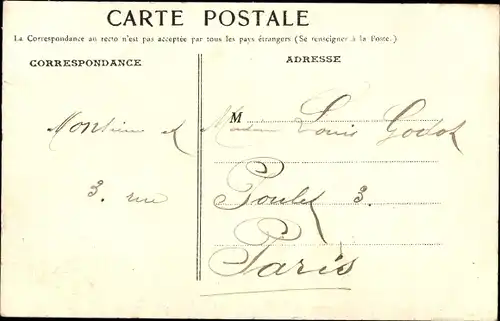 CARTE POSTALE
La Correspondance au recto n'est pas acceptée par tous les pays étrangers (Se renseigner à la Poste.)
CORRESPONDANCE
ADRESSE
Monsieur et M Madame Louis Godot
3. rue Poulet 3.
Paris